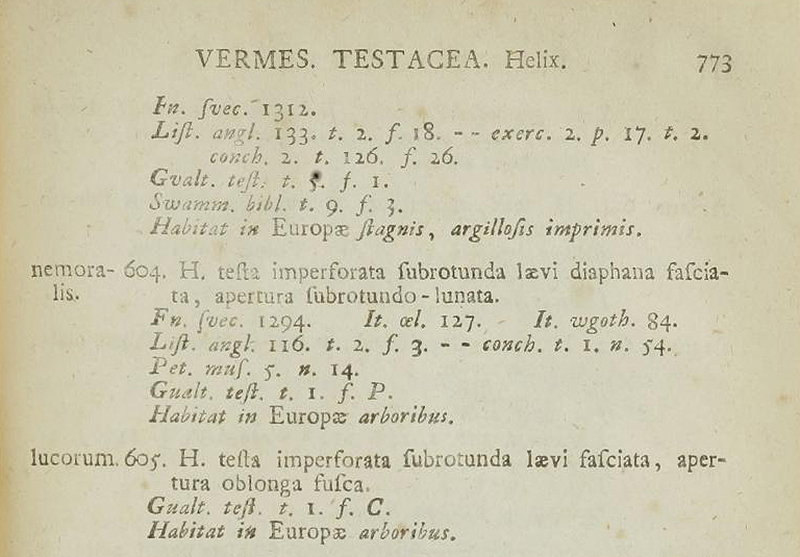 VERMES. TESTACEA. Helix. 773
Fn. ſvec. 1312.
Liſt. angl. 133. t. 2. f. 18. - - exerc. 2. p. 17. t. 2.
conch. 2. t. 126. f. 26.
Gvalt. teſt. t. 5. f. 1.
Swamm. bibl. t. 9. f. 3.
Habitat in Europæ ſtagnis, argilloſis imprimis.
nemora- 604. H. teſta imperforata ſubrotunda lævi diaphana faſcia-
lis. ta, apertura ſubrotundo-lunata.
Fn. ſvec. 1294. It. œl. 127. It. wgoth. 84.
Liſt. angl. 116. t. 2. f. 3. - - conch. t. 1. n. 54.
Pet. muſ. 5. n. 14.
Gualt. teſt. t. 1. f. P.
Habitat in Europæ arboribus.
lucorum. 605. H. teſta imperforata ſubrotunda lævi faſciata, aper-
tura oblonga fuſca.
Gualt. teſt. t. 1. f. C.
Habitat in Europæ arboribus.